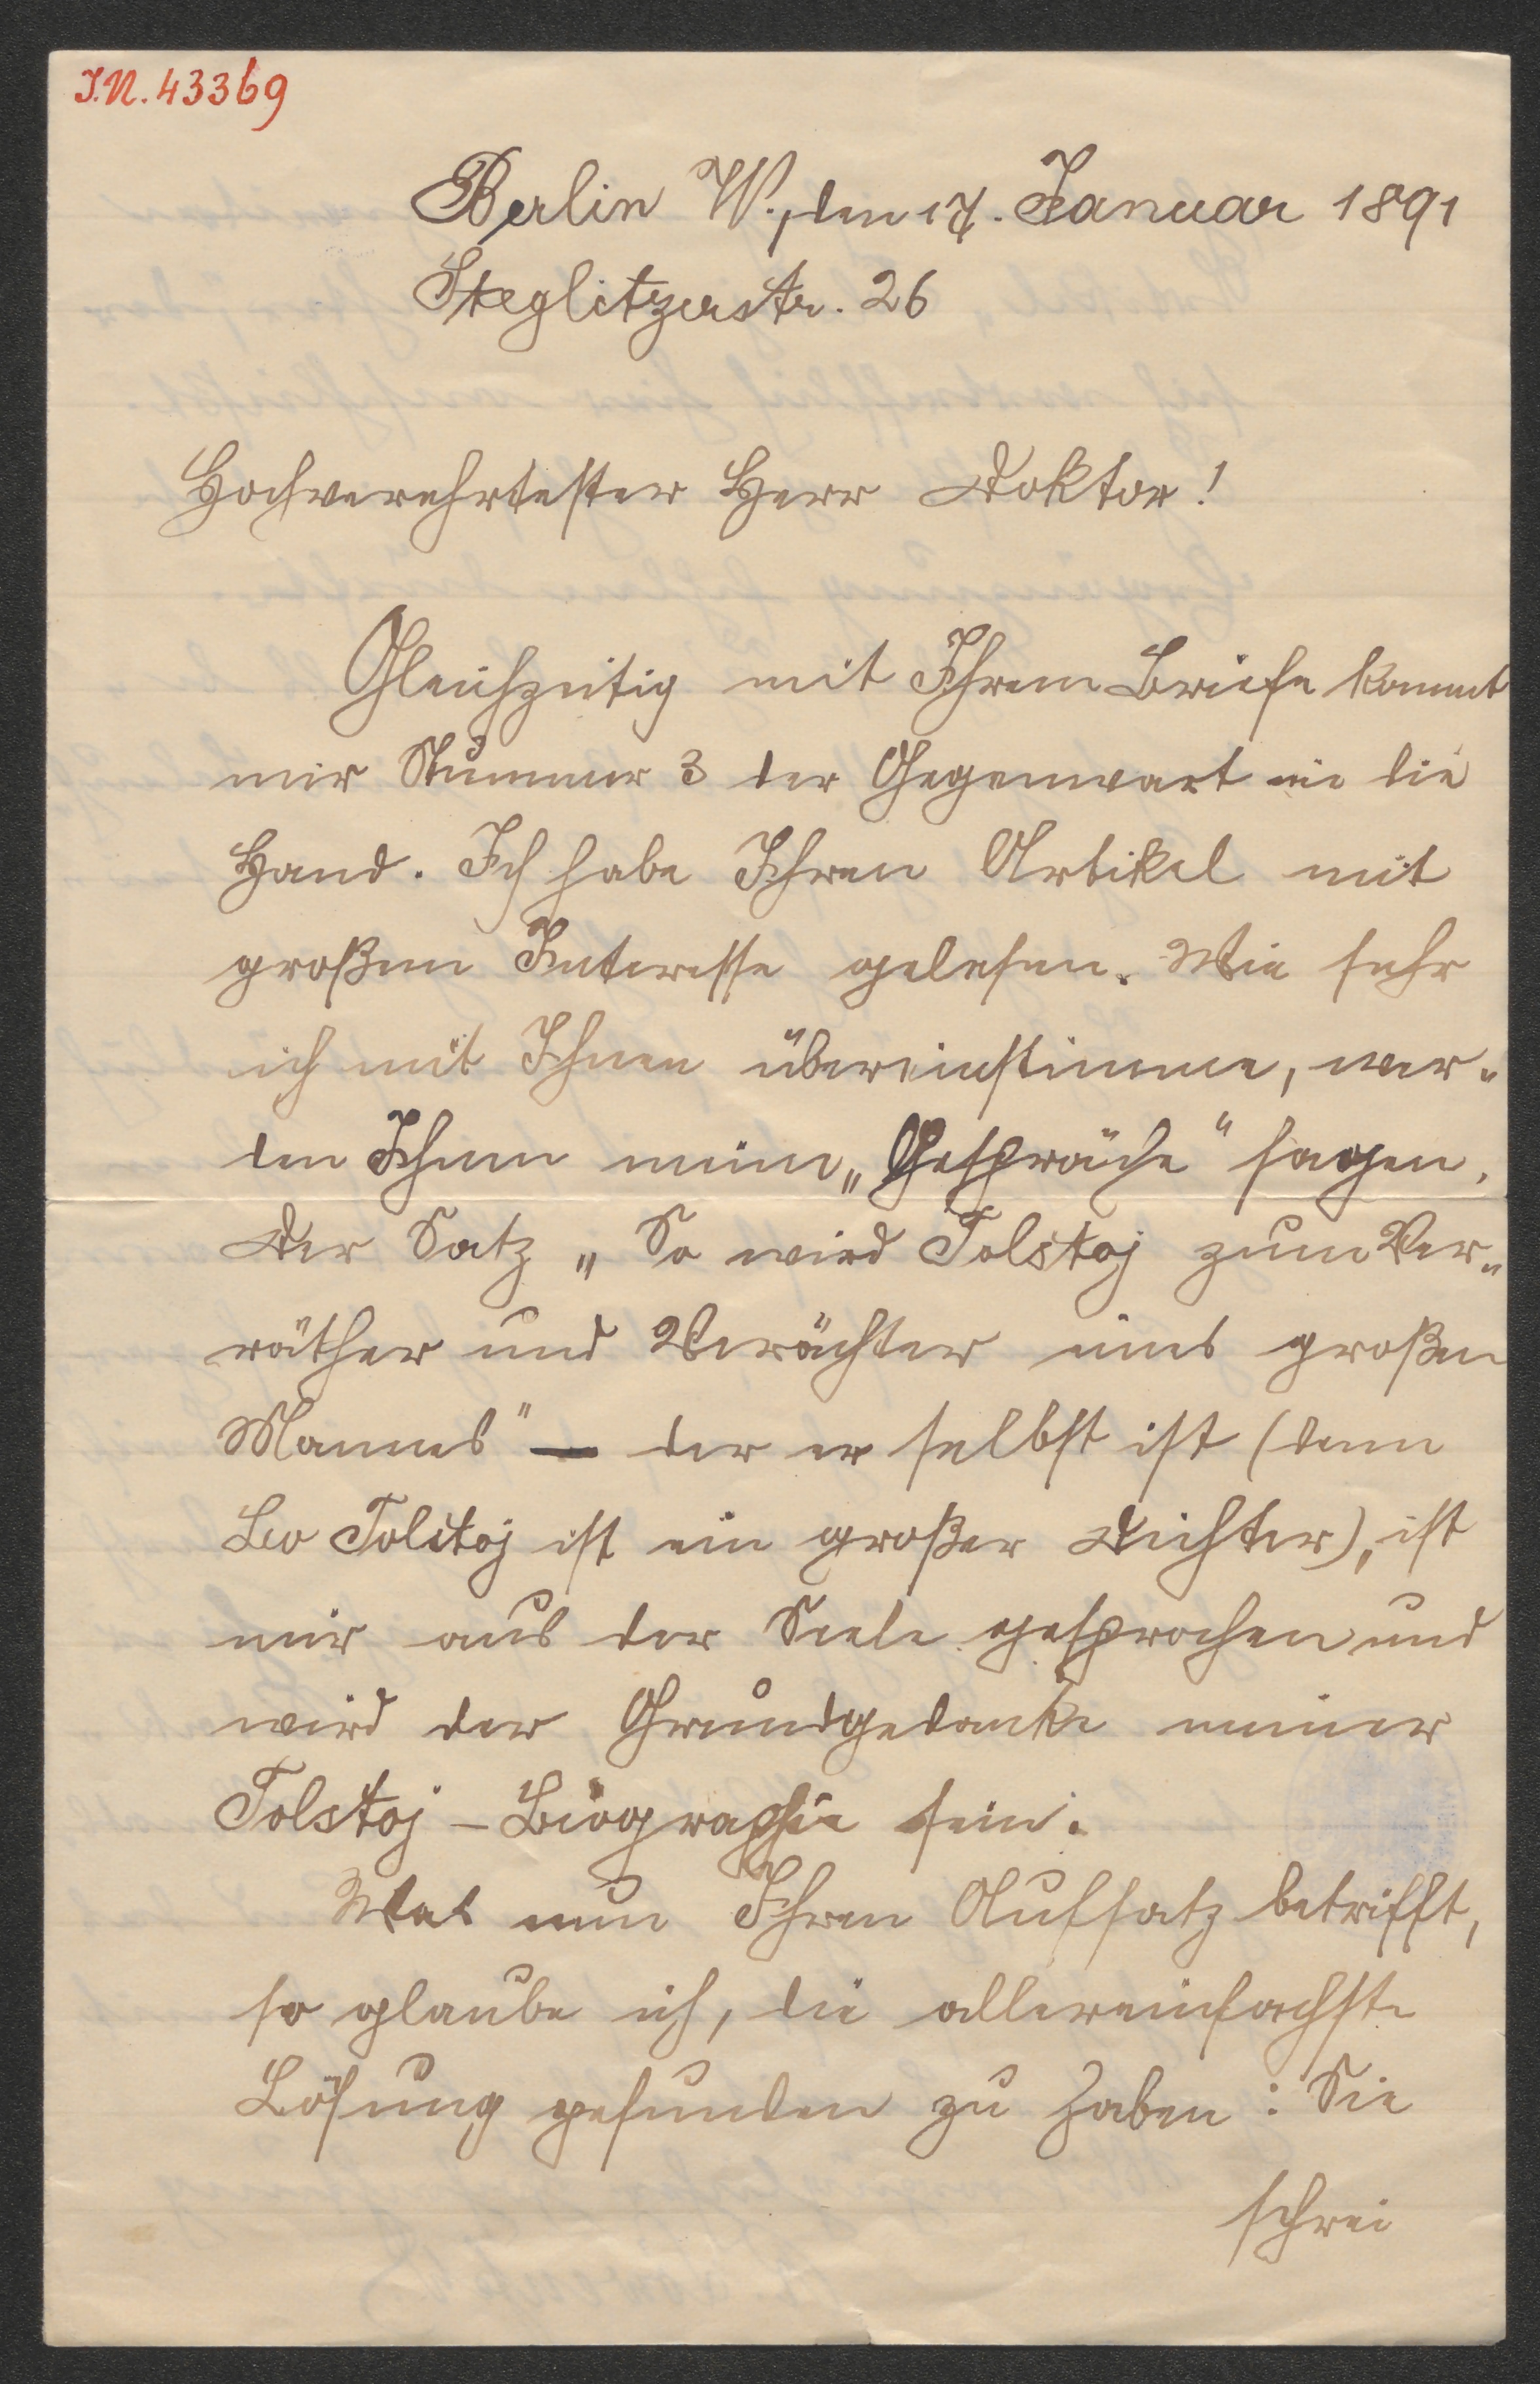 I.N. 43369
Berlin W., den 17. Januar 1891
Steglitzerstr. 26
Hochverehrtester Herr Doktor!
Gleichzeitig mit Ihrem Briefe kommt
mir Nummer 3 der Gegenwart in die
Hand. Ich habe Ihren Artikel mit
großem Interesse gelesen. Wie sehr
ich mit Ihnen übereinstimme, wer-
den Ihnen meine „Gespräche“ sagen.
Der Satz „So wird Tolstoj zum Ver-
räther und Verächter eines großen
Mannes“ — der er selbst ist (denn
Leo Tolstoj ist ein großer Dichter), ist
mir aus der Seele gesprochen und
wird der Grundgedanke meiner
Tolstoj-Biographie sein.
Was nun Ihren Aufsatz betrifft,
so glaube ich, die allereinfachste
Lösung gefunden zu haben: Sie
schrei